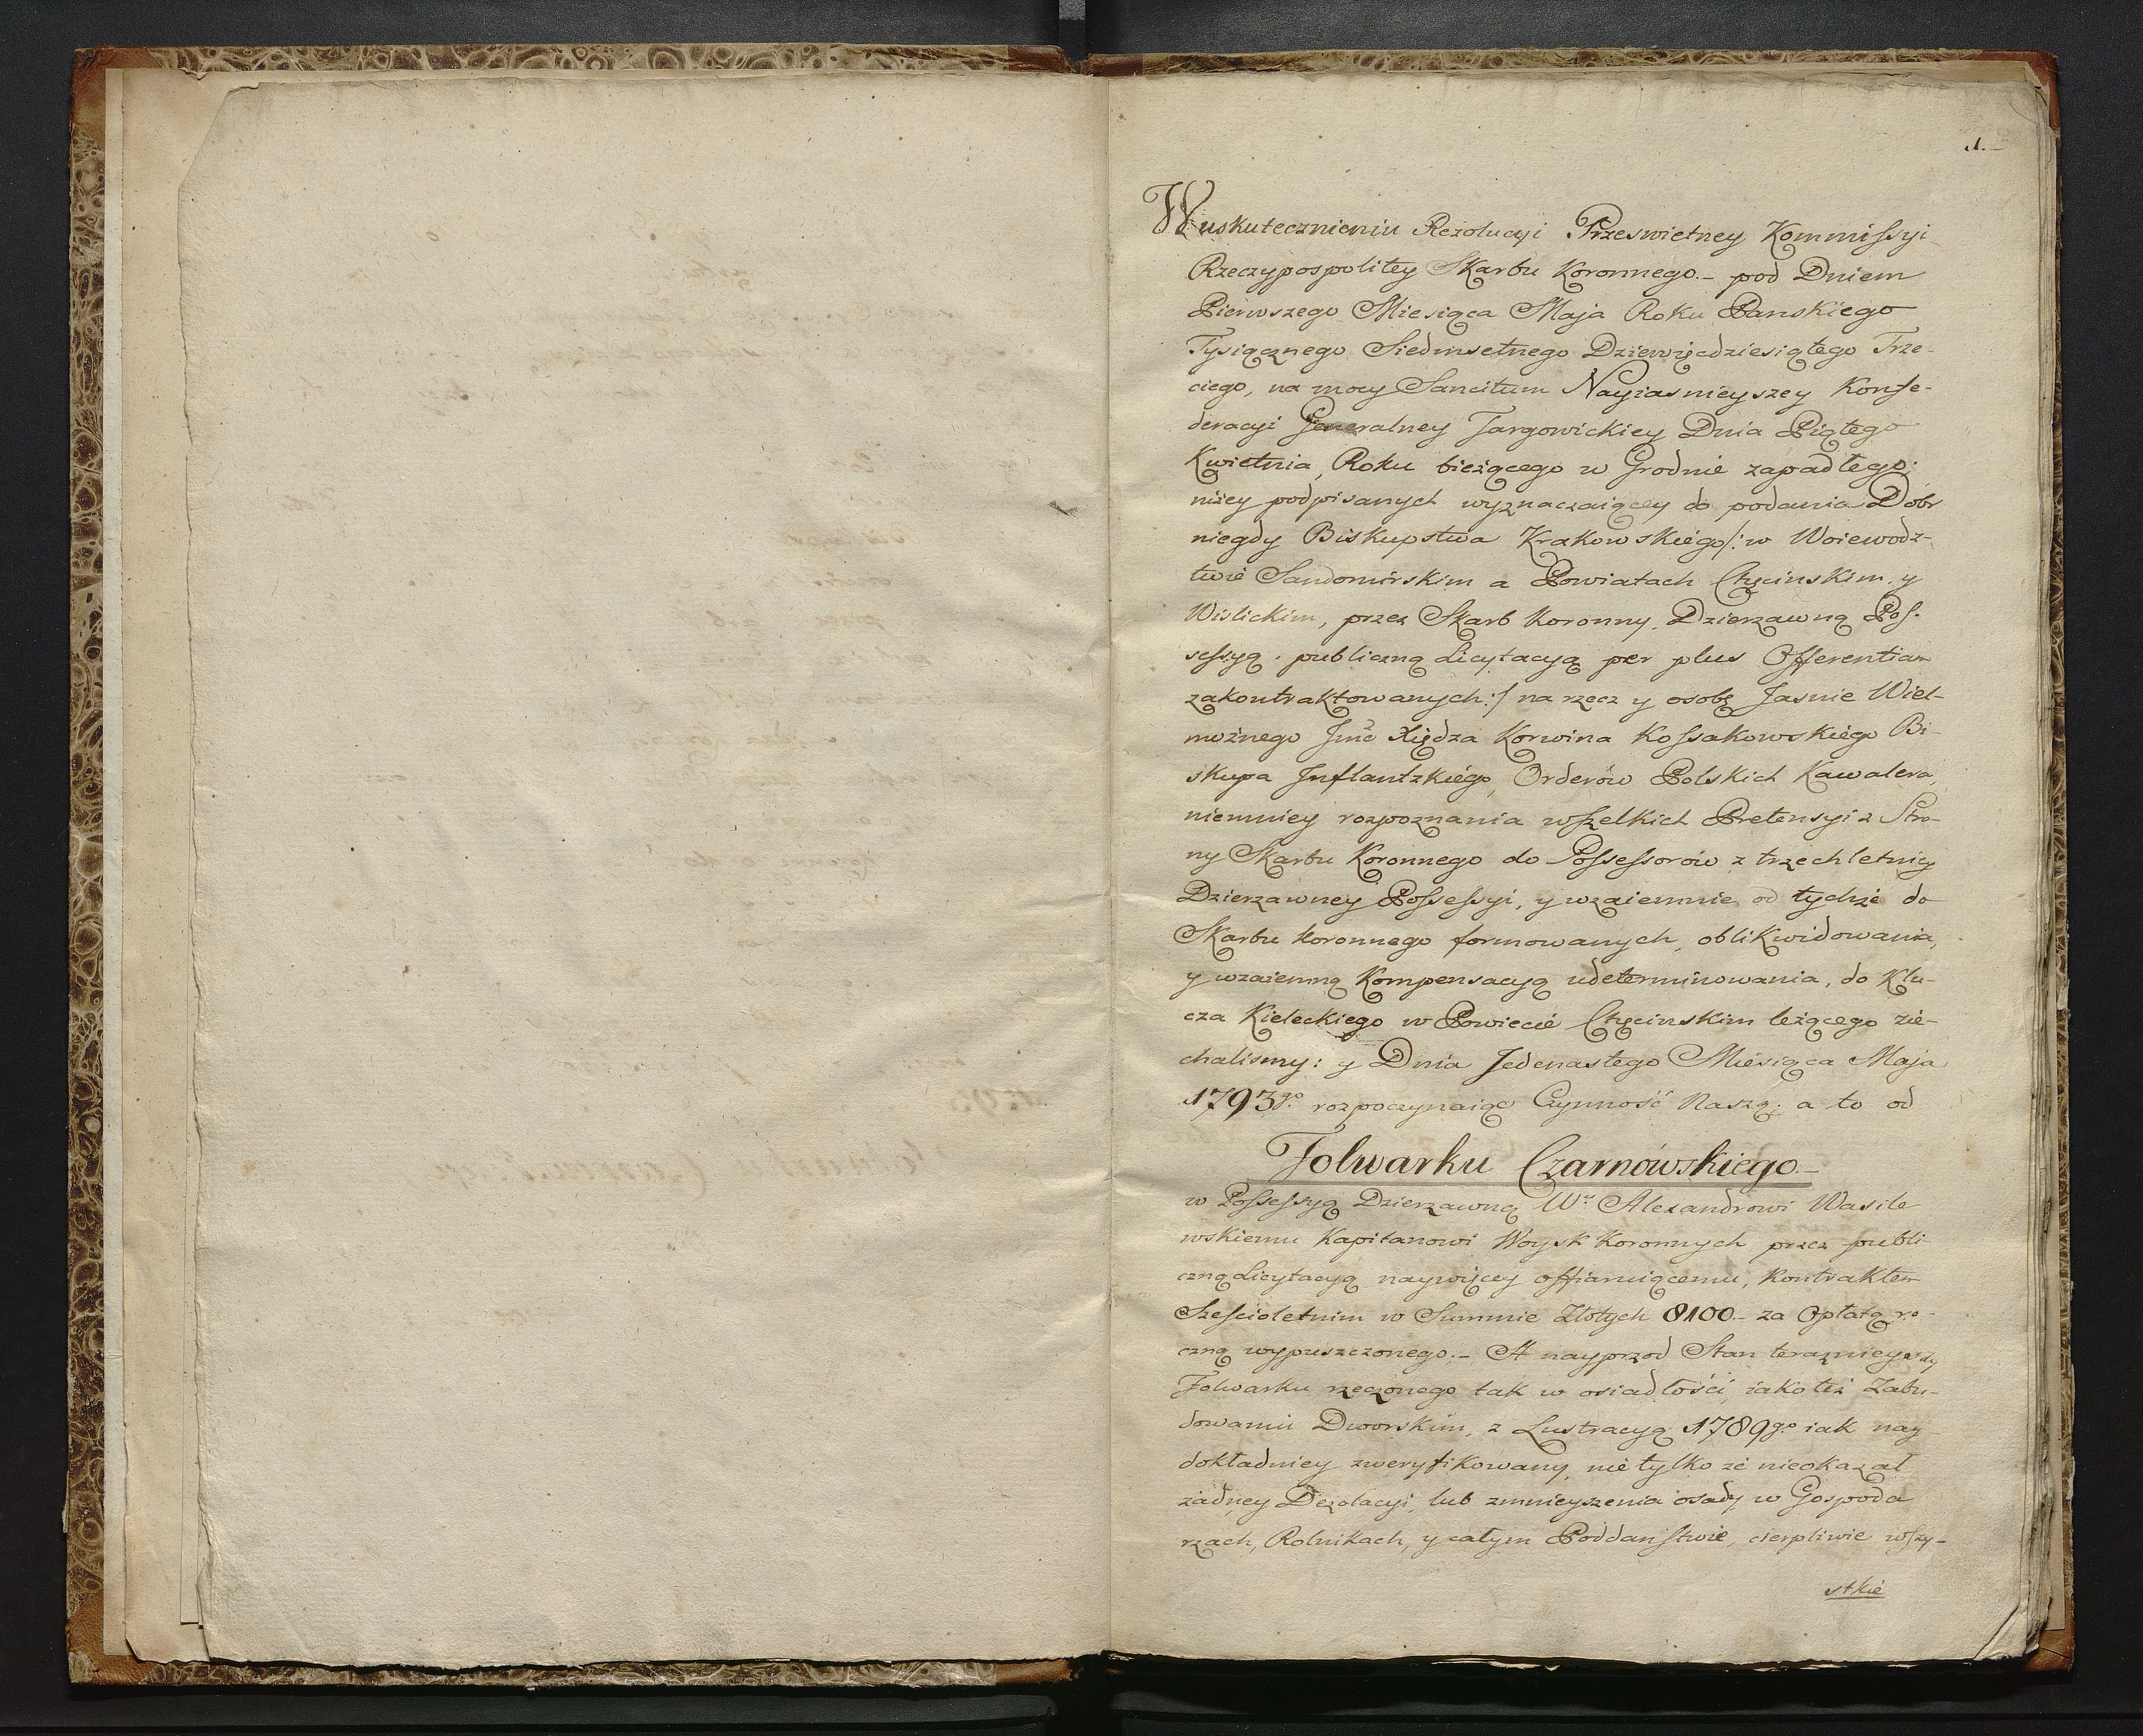 1.
W uskutecznieniu Rezolucyi Przeswietney Kommissyi
Rzeczypospolitey Skarbu Koronnego.- pod Dniem
Pierwszego Miesiąca Maja Roku Panskiego
Tysiącznego Siedmsetnego Dziewięcdziesiątego Trze-
ciego, na mocy Sancitum Nayiasnieyszey Konfe-
deracyi Generalney Targowickiey Dnia Piątego
Kwietnia, Roku bieżącego w Grodnie zapadłego;
niżey podpisanych wyznaczaiącey do podania Dobr
niegdy Biskupstwa Krakowskiego/: w Woiewodz-
twie Sandomirskim a Powiatach Chęcinskim y
Wislickim, przez Skarb Koronny, Dzierzawną Pos-
sessyą publiczną Licytacyą per plus Offerentiam
zakontraktowanych:/ na rzecz y osobę Jasnie Wiel-
możnego Jmć Xiędza Korwina Kossakowskiego Bi-
skupa Inflantzkiego, Orderów Polskich Kawalera,
niemniey rozpoznania wszelkich Pretensyi z Stro-
ny Skarbu Koronnego do Possessorów z trzechletniey
Dzierzawney Possessyi, y wzaiemnie od tychże do
Skarbu Koronnego formowanych, oblikwidowania,
y wzaiemną Kompensacyą udeterminowania, do Klu-
cza Kieleckiego w Powiecie Chęcinskim leżącego zie-
chalismy: y Dnia Jedenastego Miesiąca Maja
1793go rozpoczynaiąc Czynność Naszą; a to od
Folwarku Czarnówskiego.-
w Possessyą Dzierzawną Wu Alexandrowi Wasile
wskiemu Kapitanowi Woysk Koronnych przez publi
czną Licytacyą naywięcey offiaruiącemu, Kontraktem
Sześcioletnim w Summie Złotych 8100.- za Opłatą ro-
czną wypuszczonego.- A nayprzod Stan teraznieyszy
Folwarku rzeczonego tak w osiadłości, iako też Zabu-
dowaniu Dworskim, z Lustracyą 1789go iak nay
dokładniey zweryfikowany, nie tylko że nieokazał
żadney Dezolacyi, lub zmnieyszenia osady w Gospoda
rzach, Rolnikach, y całym Poddanstwie, cierpliwie wszy-
stkie